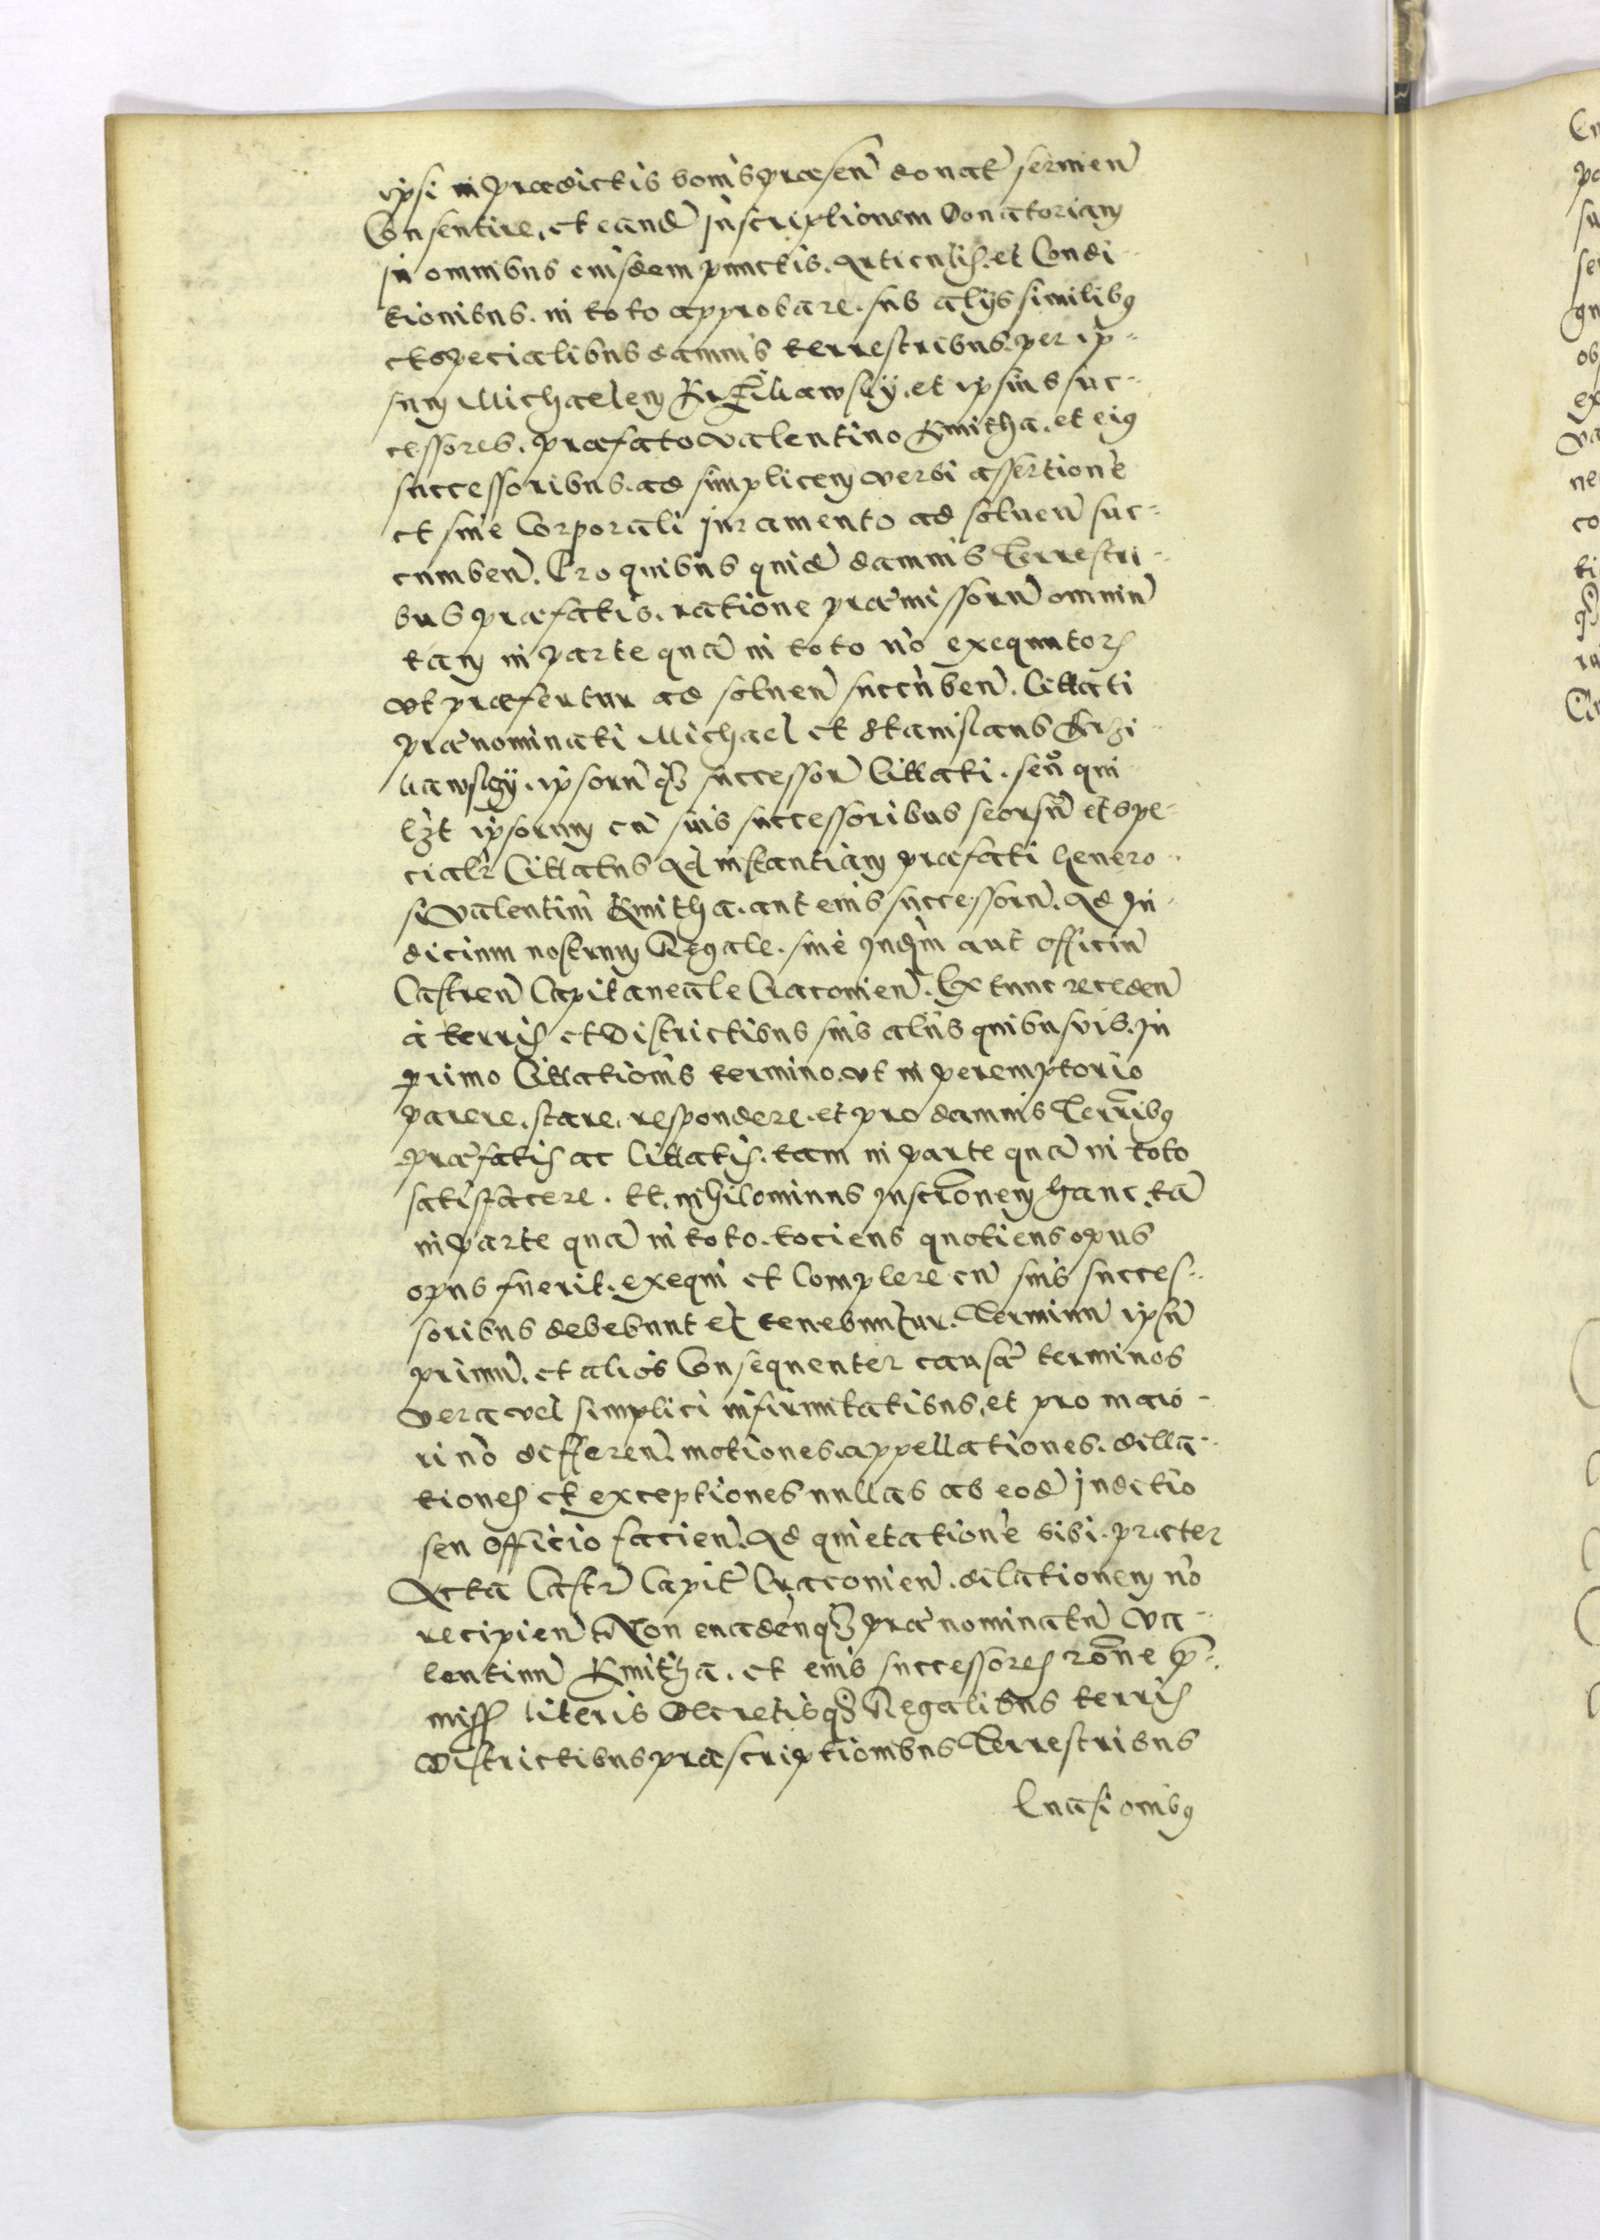 ipsi in prædictis bonis præsen̄ donat̄ servien̄
Consentire, et eand̄ Inscriptionem Donatoriam
in omnibus eiusdem punctis. Articulis. et Condi-
tionibus. in toto approbare. sub alijs similibꝰ
et specialibus damnis terrestribus. per ip-
sum Michaelem et ipsius suc-
cessores. præfato Valentino Kmitha. et eiꝰ
successoribus. ad simplicem verbi assertionē
et sine Corporali Juramento ad solven̄ suc-
cumben̄. Pro quibus quid̄ damnis Terrestri-
bus præfatis. ratione præmissorū omniū
tam in parte quā in toto nō exequutorꝫ
Vt præfertur ad solven̄ succūben̄. Cittati
prænominati Michael et Stanislaus Krzi-
ipsorūqꝫ successor̄ Cittati. seu qui-
lꝫt ipsorum cū suis successoribus seorsū et spe-
cialr̄ Cittatus Ad instantiam præfati Genero-
si Valentini Kmitha. aut eius successorū. Ad Ju-
dicium nostrum Regale. sive Judm̄ aut Officiū
Castren̄ Capitaneale Cracovien̄. Ex tunc receden̄
à terris et Districtibus suis alijs quibusvis. In
primo Cittationis termino. vt in peremptorio
parere. stare. respondere. et pro damnis Terr̄ibꝰ
præfatis ac Cittatis. tam in parte quā in toto
satisfacere. Et. nihilominus Inscr̄onem hanc. tā
in parte quā in toto. tociens quotiens opus
opus fuerit. exequi et Complere cū suis succes-
soribus debebunt et tenebuntur. Terminū ipsū
primū. et alios Consequenter causæ terminos
vera vel simplici infirmitatibus, et pro maio-
ri nō differen̄. motiones. appellationes. dilla-
tiones et exceptiones nullas ab eod̄ Judicio
seu Officio facien̄. Ad quietationē sibi. præter
Acta Castr̄ Capit̄ Cracovien̄. dilationem nō
recipien̄. Non evaden̄qꝫ prænominatū Va-
lentinū Kmitha. et eius successores rōne p̄-
miss̄ literis Decretisqꝫ Regalibus terris
Districtibus præscriptionibus Terrestribus
Evasionibꝰ